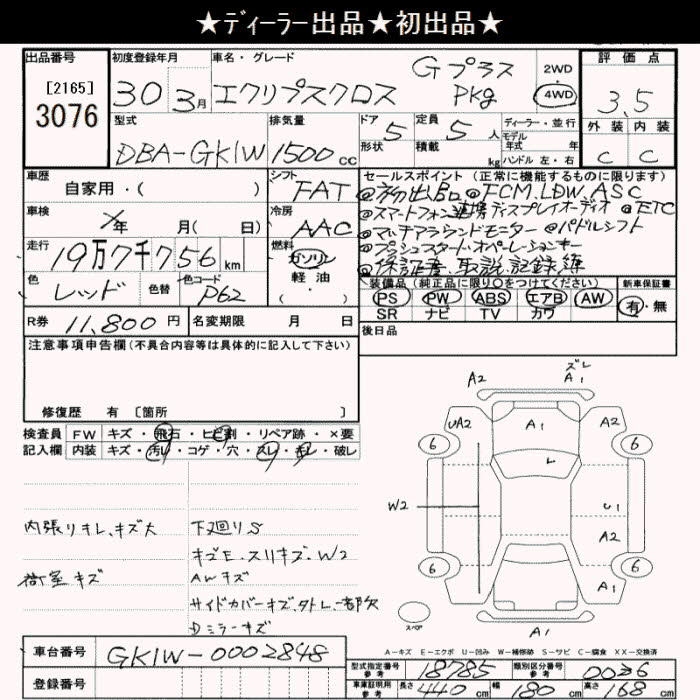 ★ディーラー出品★初出品★
出品番号 初度登録年月 車名・グレード 評価点
[2165] 30 3月 エクリプスクロス Gプラス Pkg 2WD 4WD 3.5
3076
型式 排気量 ドア形状 定員積載 ディーラー・並行 モデル年式 年 外装 内装
DBA-GK1W 1500cc 5 5人 kg ハンドル 左・右 C C
車歴 シフト セールスポイント(正常に機能するものに限ります)
自家用・( ) FAT @初出品 @FCM.LDW.ASC
車検 年 月(日) 冷房 AAC @スマートフォン連携ディスプレイオーディオ @ETC
走行 19万7千756km 燃料 ガソリン @マルチアラウンドモニター @パドルシフト
軽油 @プッシュスタート・オペレーションキー
・( ) @保証書、取説、記録簿
色 レッド 色替 色コード P62
装備品(純正品に限り○をつけてください) 新車保証書
PS PW ABS エアB AW 有・無
SR ナビ TV カワ
R券 11,800円 名変期限 月 日 後日品
注意事項申告欄(不具合内容等は具体的に記入して下さい)
修復歴 有 [箇所 ]
検査員 FW キズ・飛石・ヒビ割・リペア跡・×要
記入欄 内装 キズ・汚レ・コゲ・穴・スレ・キレ・破レ
A2 ズレ A1
UA2 A1 A2
6 6
W2 U1
A2
6 6
A1
スペア A1
内張りキレ、キズ大 下廻りS
キズE、スリキズ、W2
荷室キズ AWキズ
サイドカバーキズ、外レ、一部欠
Dミラーキズ
A-キズ E-エクボ U-凹み W-補修跡 S-サビ C-腐食 XX-交換済
車台番号 GK1W-0002848
型式指定番号 参考 18785 類別区分番号 参考 0036
登録番号 車庫証明用 参考 長さ 440cm 幅 180cm 高さ 168cm